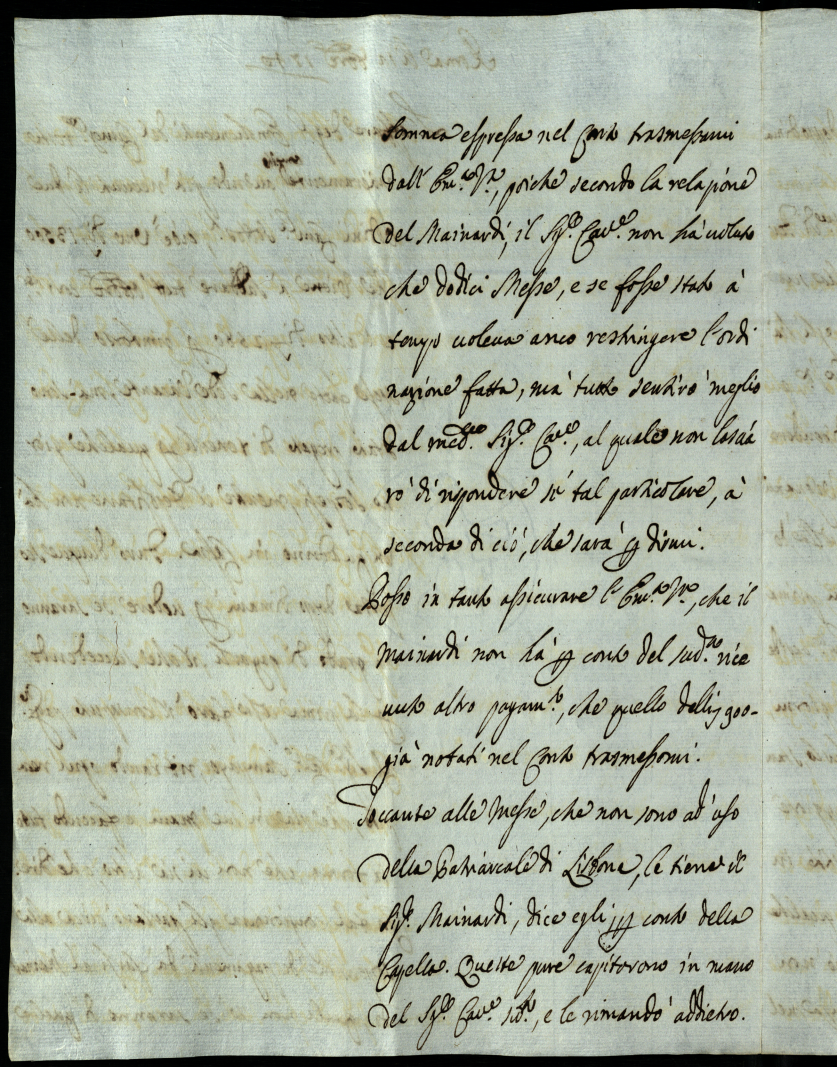 somma espressa nel Conto trasmessomi
dall' Em.ª V.ª, poiche secondo la relazione
del Mainardi, il Sig.re Cav.re non há uoluto
che dodici Messe, e se fosse stato à
tempo uoleua anco restringere l'ordi
nazione fatta, má tutto sentiró meglio
dal med.mo Sig.re Cav.re, al quale non lascia
ró di rispondere sú tal particolare, à
seconda di ció, che sará p dirmi.
Posso in tanto assicurare l'Em.ª V.ª, che il
Mainardi non há p conto del sud.to rice
uuto altro pagam.to, che quello delli 900-
giá notati nel Conto trasmessomi.
Toccante alle Messe, che non sono ad uso
della Patriarcale di Lisbona, le tiene il
Sig.r Mainardi, dice egli p conto della
Capella. Queste pure capitorono in mano
del Sig.re Cav.re sud.to, e le rimandó addietro.